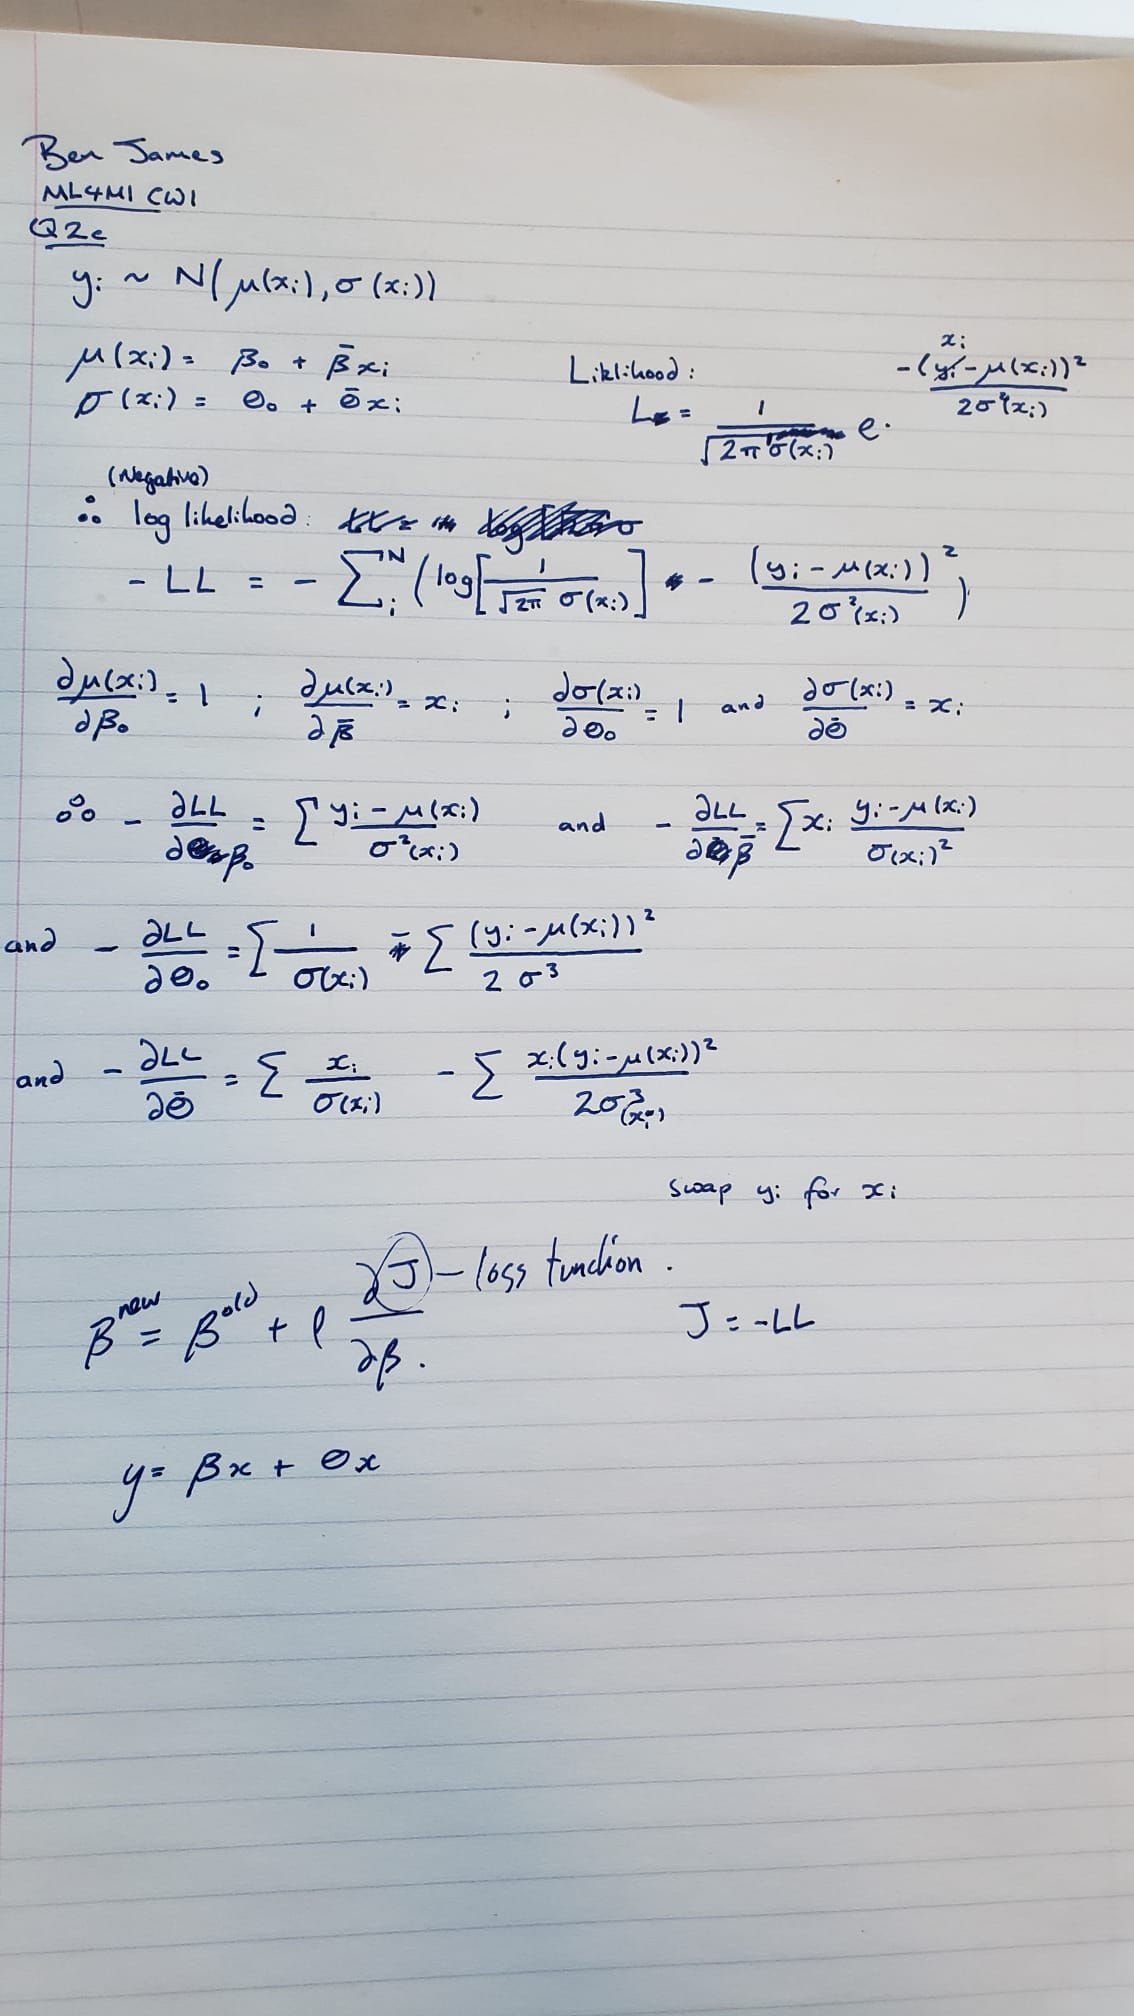 Ben James
ML4MI CW1
Q2c
yᵢ ~ N(μ(xᵢ), σ(xᵢ))
μ(xᵢ) = β₀ + β̄xᵢ
σ(xᵢ) = θ₀ + θ̄xᵢ
Liklihood:
L = 1/√2π σ(xᵢ) e. -(xᵢ - μ(xᵢ))² / 2σ²(xᵢ)
(Negative)
∴ log likelihood:
-LL = - Σᵢᴺ (log[1/(√2π σ(xᵢ))] - (yᵢ - μ(xᵢ))² / 2σ²(xᵢ))
∂μ(xᵢ)/∂β₀ = 1 ; ∂μ(xᵢ)/∂β̄ = xᵢ ; ∂σ(xᵢ)/∂θ₀ = 1 and ∂σ(xᵢ)/∂θ̄ = xᵢ
∴ - ∂LL/∂β₀ = Σ (yᵢ - μ(xᵢ))/σ²(xᵢ) and - ∂LL/∂β̄ = Σ xᵢ (yᵢ - μ(xᵢ))/σ(xᵢ)²
and - ∂LL/∂θ₀ = Σ 1/σ(xᵢ) - Σ (yᵢ - μ(xᵢ))² / 2σ³
and - ∂LL/∂θ̄ = Σ xᵢ/σ(xᵢ) - Σ xᵢ(yᵢ - μ(xᵢ))² / 2σ³(xᵢ)
swap yᵢ for xᵢ
βⁿᵉʷ = βᵒˡᵈ + ρ ∂J/∂β. - loss function.
J = -LL
y = βx + θx